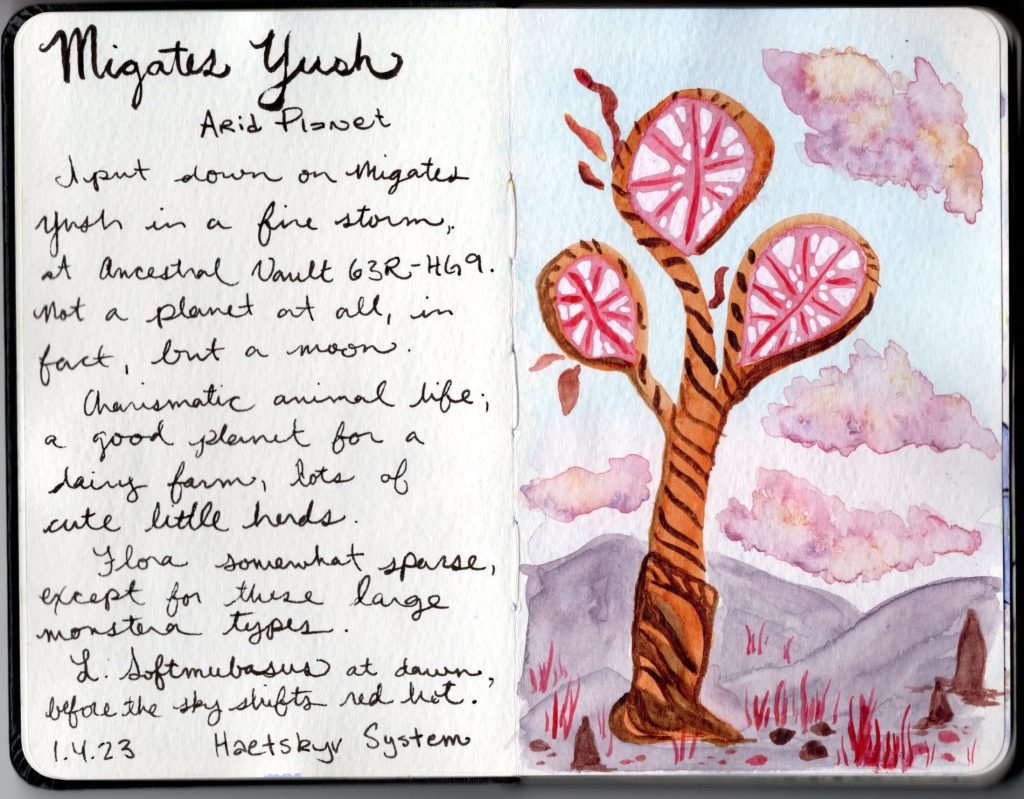 Migates Yush
Arid Planet
I put down on Migates
Yush in a fire storm,
at Ancestral Vault 63R-HG9.
Not a planet at all, in
fact, but a moon.
Charismatic animal life;
a good planet for a
dairy farm, lots of
cute little herds.
Flora somewhat sparse,
except for these large
monstera types.
L. Softmubasus at dawn,
before the sky shifts red hot.
1.4.23 Haetskyv System